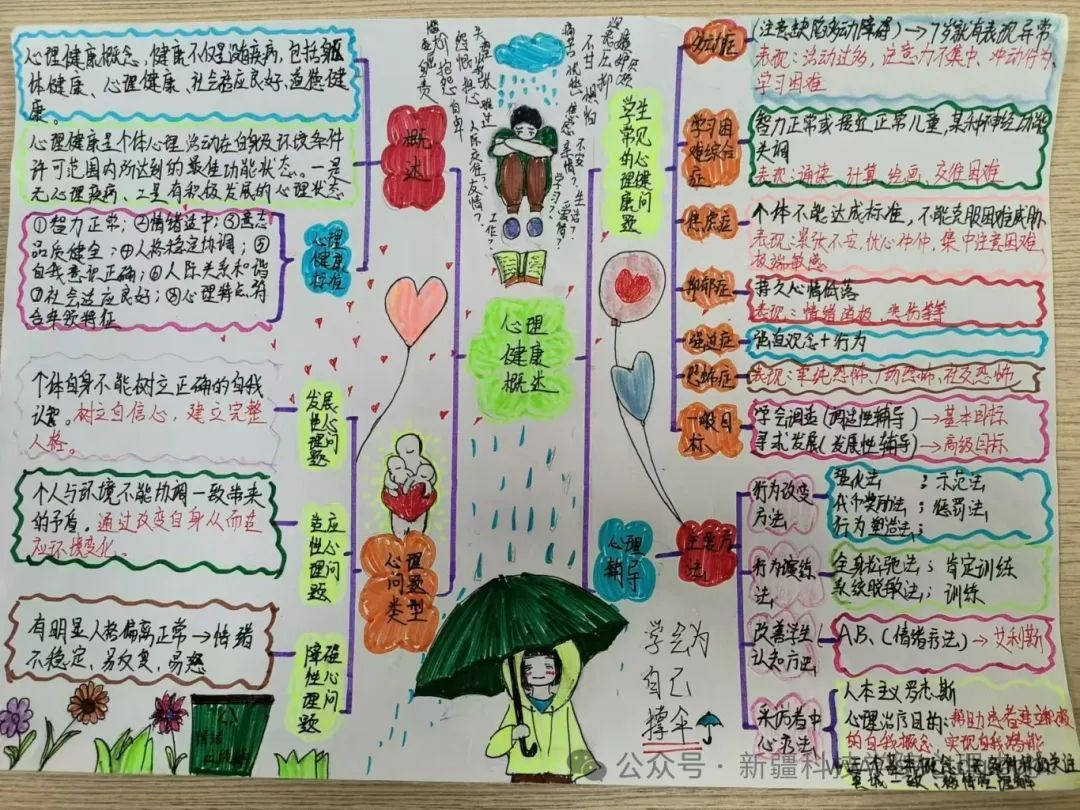 心理健康概述
概述
心理健康概念,健康不仅是没有疾病,包括躯
体健康、心理健康、社会适应良好,道德健
康。
心理健康是个体心理活动在自身及环境条件
许可范围内所达到的最佳功能状态。一是
无心理疾病,二是有积极发展的心理状态
心理健康标准
①智力正常;②情绪适中;③意志
品质健全;④人格稳定协调;⑤
自我意识正确;⑥人际关系和谐
⑦社会适应良好;⑧心理特点符
合年龄特征
心理问题类型
发展性心理问题
个体自身不能树立正确的自我
认智。树立自信心,建立完整
人格。
适应性心理问题
个人与环境不能协调一致带来
的矛盾。通过改变自身从而适
应环境变化。
障碍性心理问题
有明显人格偏离正常→情绪
不稳定、易反复,易怒
学生常见的心理健康问题
多动症
(注意缺陷多动障碍)→7岁就有表现异常
表现:活动过多,注意力不集中、冲动行为、
学习困难
学习困难综合症
智力正常或接近正常儿童,某种神经功能
失调
表现:诵读、计算、绘画、交往困难
焦虑症
个体不能达成标准,不能克服困难威胁
表现:紧张不安,忧心忡忡,集中注意困难
极端敏感
抑郁症
持久心情低落
表现:情绪消极、悲伤等
强迫症
强迫观念+行为
恐怖症
表现:单纯恐怖、广场恐怖、社交恐怖
一般目标
学会调适(调适性辅导)→基本目标
寻求发展(发展性辅导)→高级目标
心理辅导
主要方法
行为改变方法
强化法;示范法
代币奖励法;惩罚法
行为塑造法;
行为演练法
全身松弛法;肯定训练
系统脱敏法;训练
改善学生认知方法
A、B、(情绪疗法)→艾利斯
来访者中心疗法
人本主义罗杰斯
心理治疗目的:帮助患者建立
的自我概念,实现自我潜能
学会为
自己
撑伞
公众号·新疆科